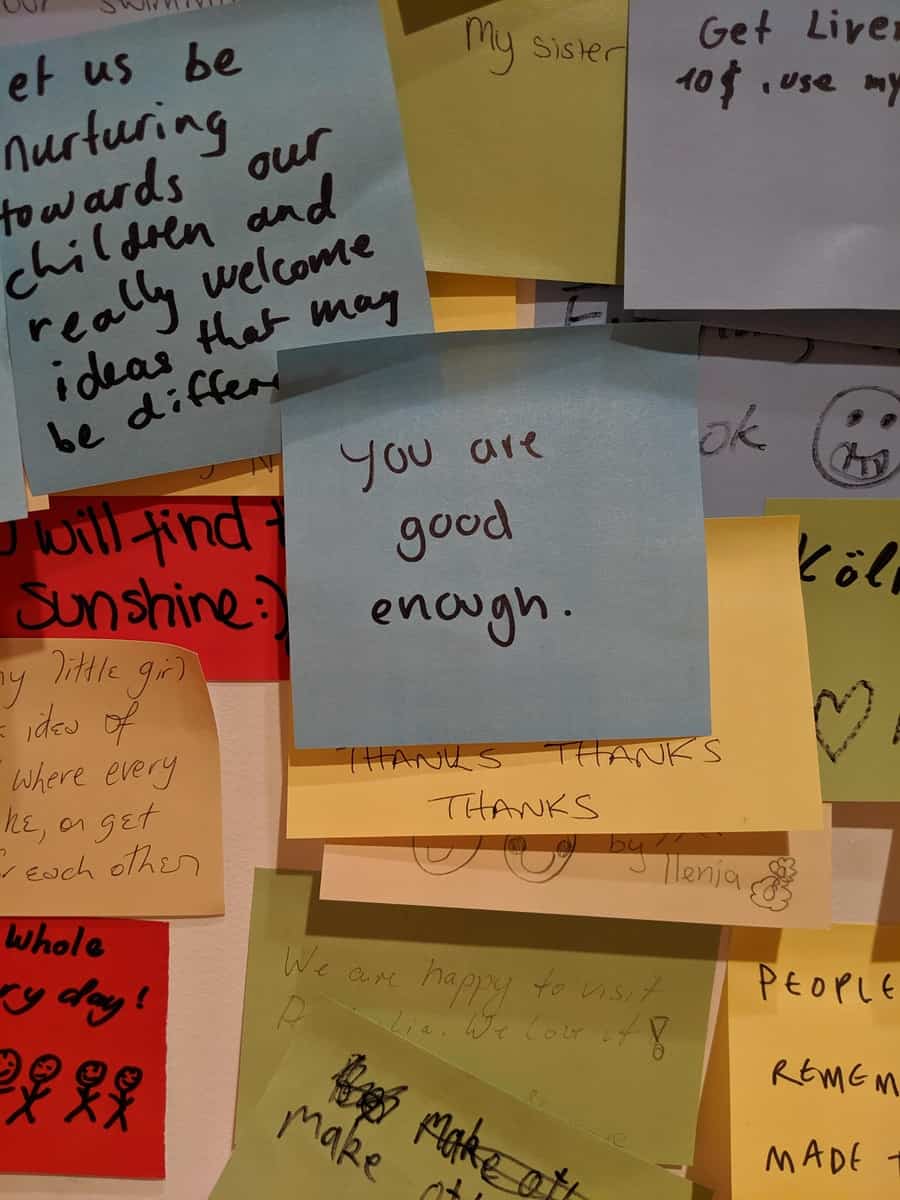 our
et us be
nurturing
towards our
children and
really welcome
ideas that may
be differ
My sister
Get Liver
10$ . use my
ok
You are
good
enough.
will find
Sunshine:)
Köl
my little girl
idea of
where every
or get
each other
THANKS THANKS
THANKS
by
Ilenia
Whole
ry day!
We are happy to visit
We love it!
make
make
PEOPLE
REMEM
MADE